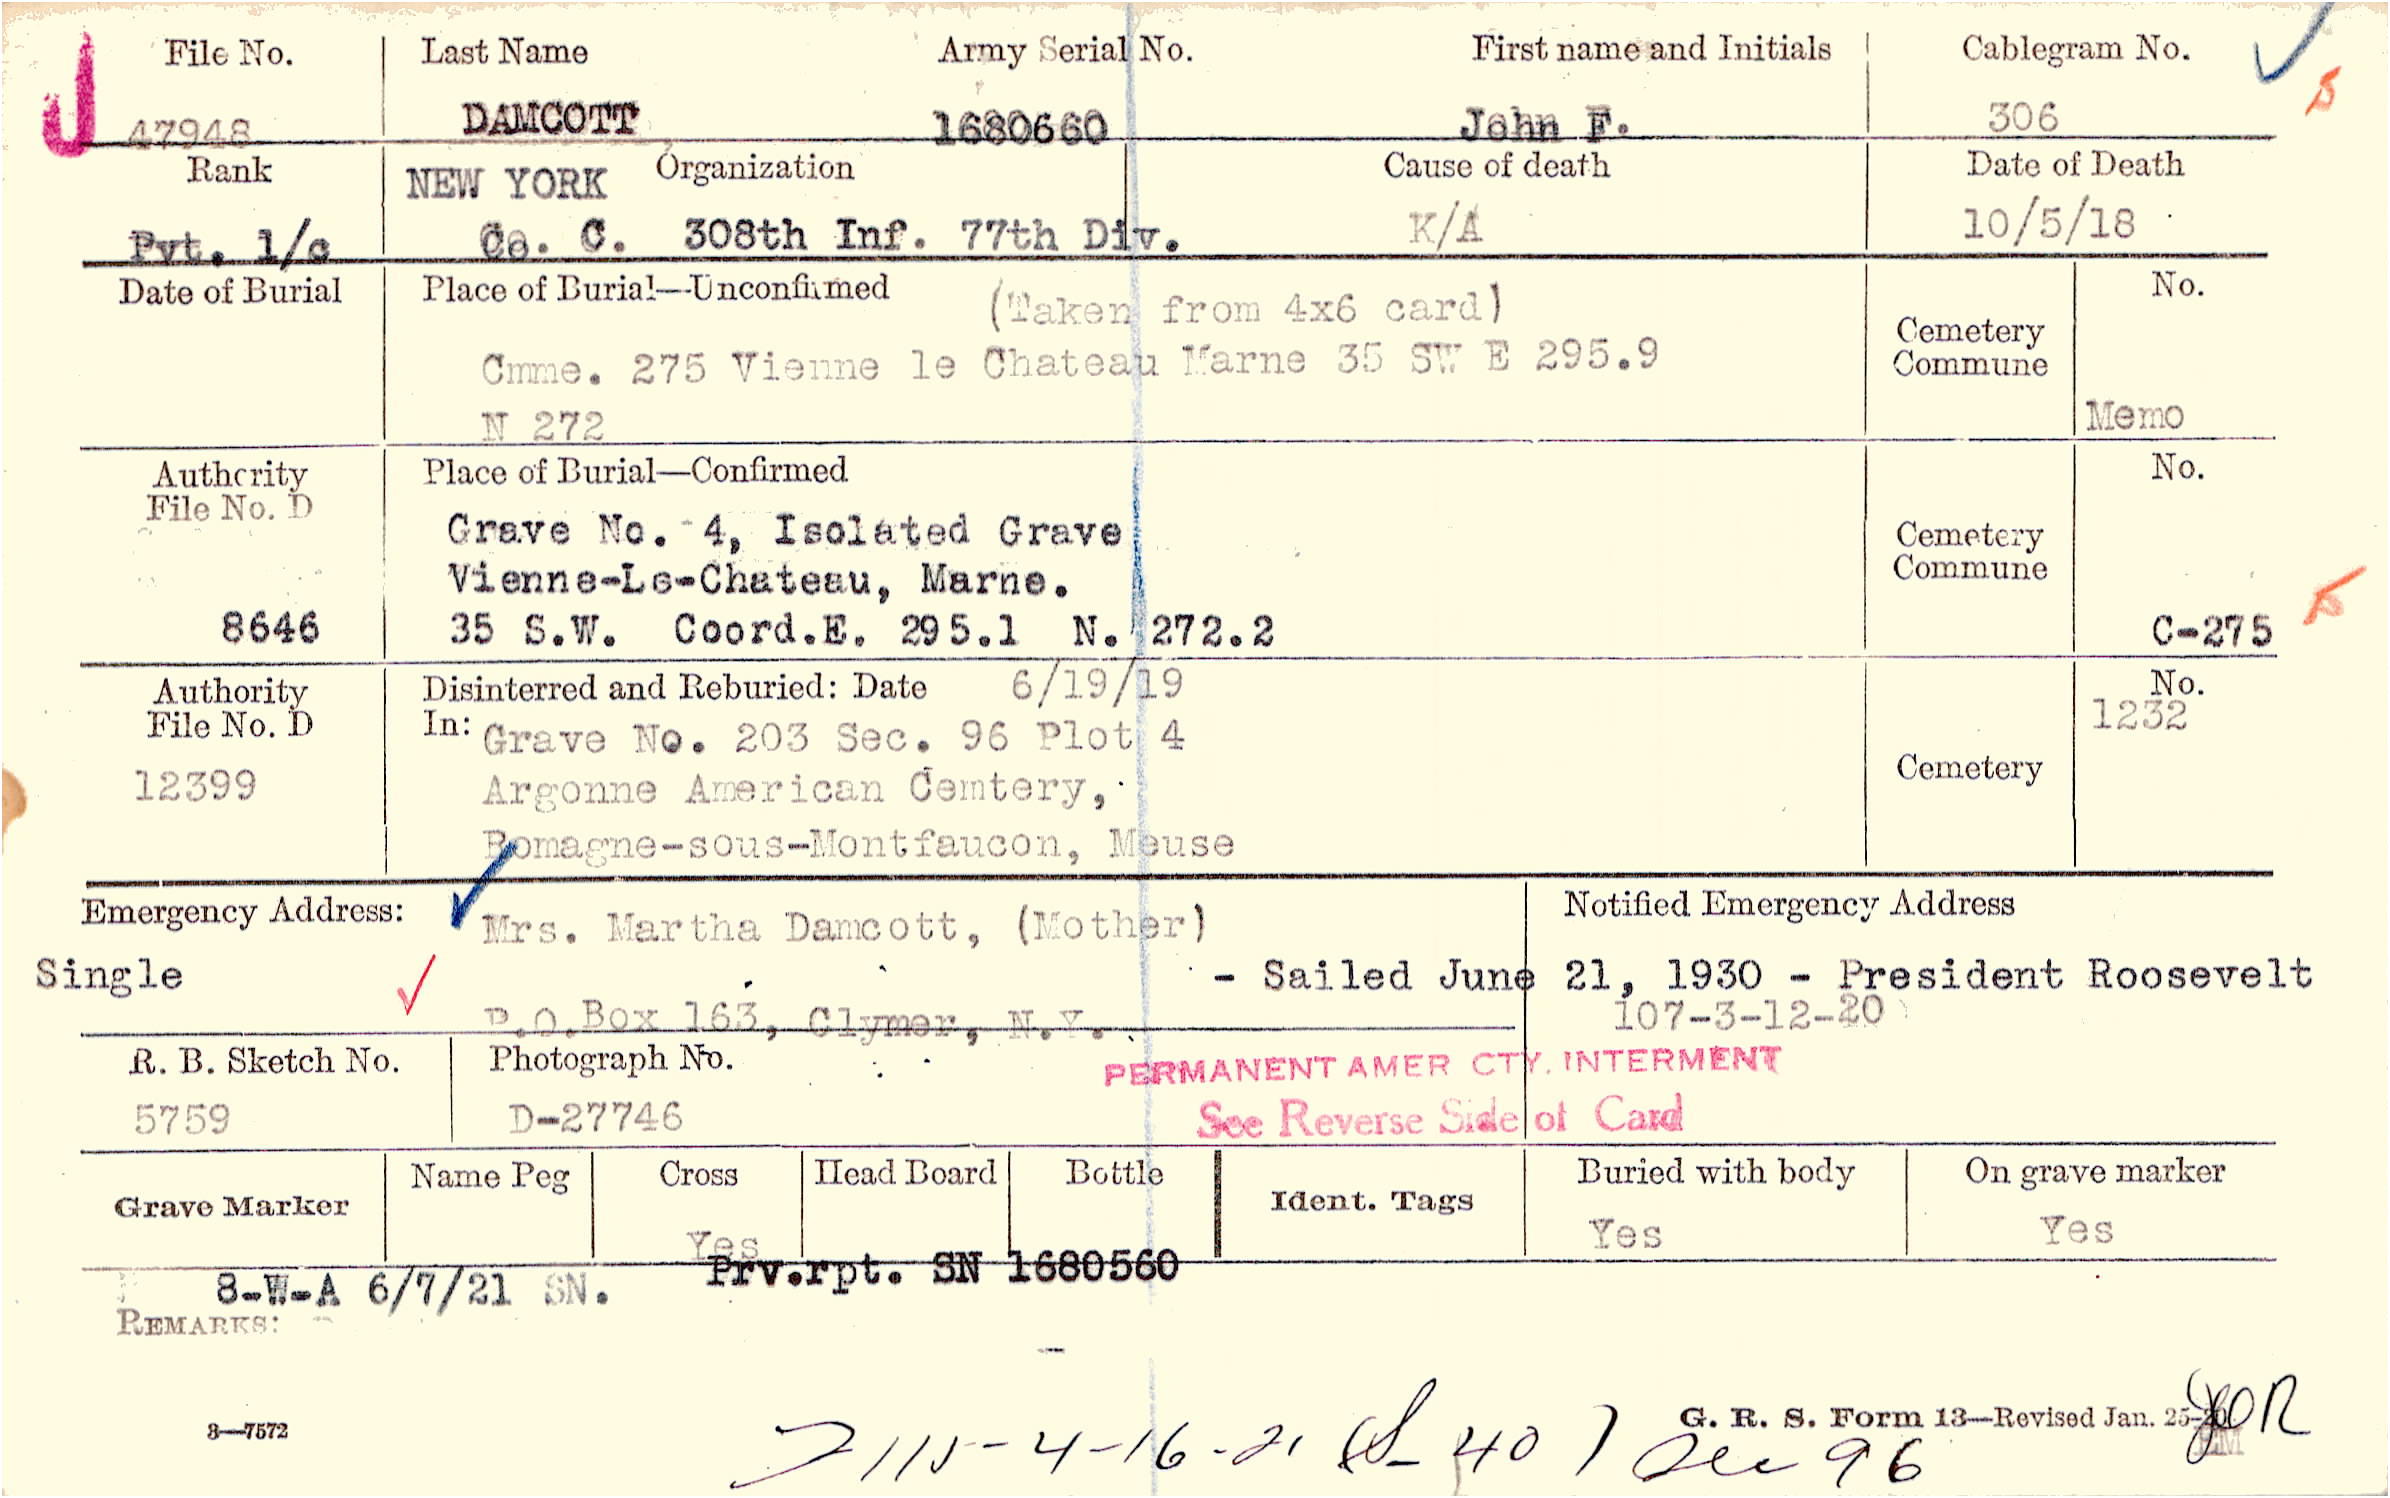 J
File No. Last Name Army Serial No. First name and Initials Cablegram No.
47948 DAMCOTT 1680660 John F. 306
Rank NEW YORK Organization Cause of death Date of Death
Pvt. 1/c Co. C. 308th Inf. 77th Div. K/A 10/5/18
Date of Burial Place of Burial—Unconfirmed (Taken from 4x6 card) No.
Cmme. 275 Vienne le Chateau Marne 35 SW E 295.9 Cemetery Commune
N 272 Memo
Authority File No. D Place of Burial—Confirmed No.
Grave No. 4, Isolated Grave Cemetery Commune
Vienne-Le-Chateau, Marne.
8646 35 S.W. Coord.E. 295.1 N. 272.2 C-275
Authority File No. D Disinterred and Reburied: Date 6/19/19 No.
In: Grave No. 203 Sec. 96 Plot 4 1232
12399 Argonne American Cemtery, Cemetery
Romagne-sous-Montfaucon, Meuse
Emergency Address: Mrs. Martha Damcott, (Mother) Notified Emergency Address
Single - Sailed June 21, 1930 - President Roosevelt
P.O.Box 163, Clymer, N.Y. 107-3-12-20
R. B. Sketch No. Photograph No. PERMANENT AMER CTY. INTERMENT
5759 D-27746 See Reverse Side of Card
Grave Marker Name Peg Cross Head Board Bottle Ident. Tags Buried with body On grave marker
Yes Yes Yes
8-W-A 6/7/21 SN. Prv.rpt. SN 1680560
REMARKS:
3—7572 G. R. S. Form 13—Revised Jan. 25-20
115-4-16-21 40 Sec 96